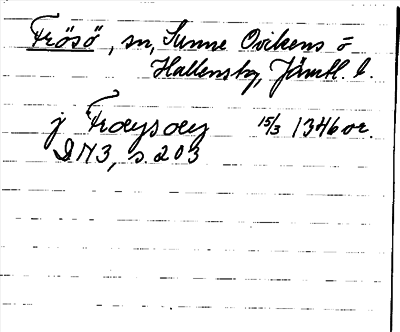 Frösö, sn, Sunne Ovikens o
Hallens tg, Jämtl. l.
j Frøysøy 15/3 1346 or.
DN 3, s. 203